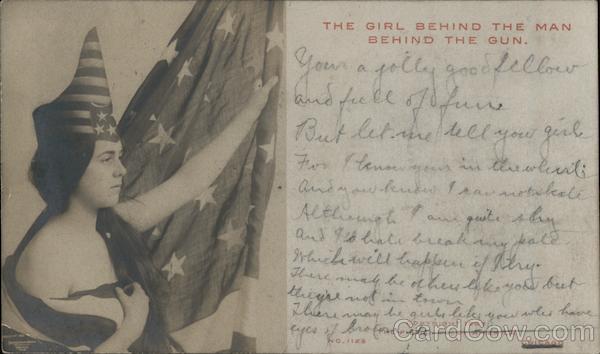 THE GIRL BEHIND THE MAN
BEHIND THE GUN.
Your a jolly good fellow
and full of fun
But let me tell you girl
For I know your in the
And you know I can not skate
Although I am quite shy
And I'd hate break my pate
Which will happen if I try.
There may be others like you but
they're not in town
There may be girls like you who have
eyes of brown
NO. 1123
CardCow.com